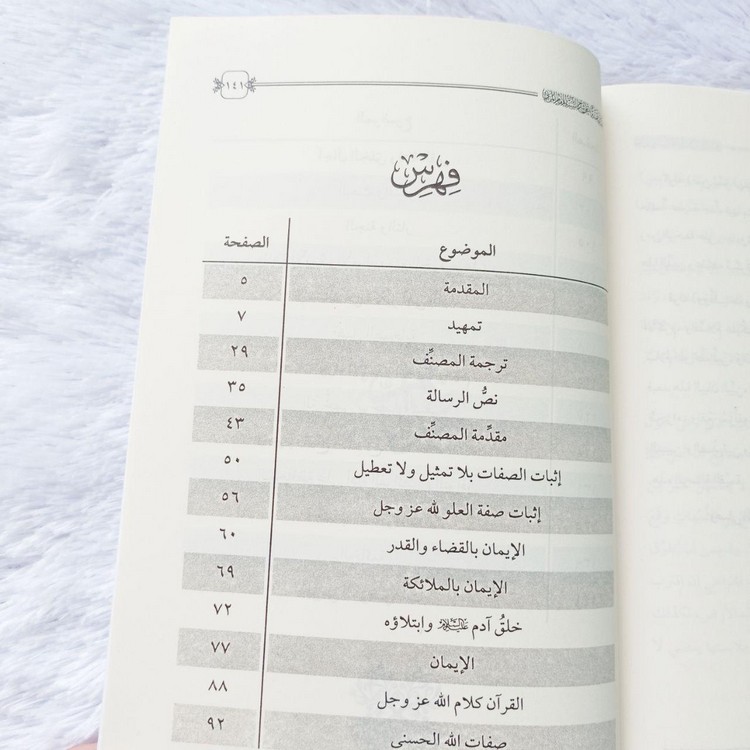 ١٤١
فِهْرِسْ
الموضوع الصفحة
المقدمة ٥
تمهيد ٧
ترجمة المصنِّف ٢٩
نصُّ الرسالة ٣٥
مقدِّمة المصنِّف ٤٣
إثبات الصفات بلا تمثيل ولا تعطيل ٥٠
إثبات صفة العلو لله عز وجل ٥٦
الإيمان بالقضاء والقدر ٦٠
الإيمان بالملائكة ٦٩
خلقُ آدم عليه السلام وابتلاؤه ٧٢
الإيمان ٧٧
القرآن كلام الله عز وجل ٨٨
صفات الله الحسنى ٩٢